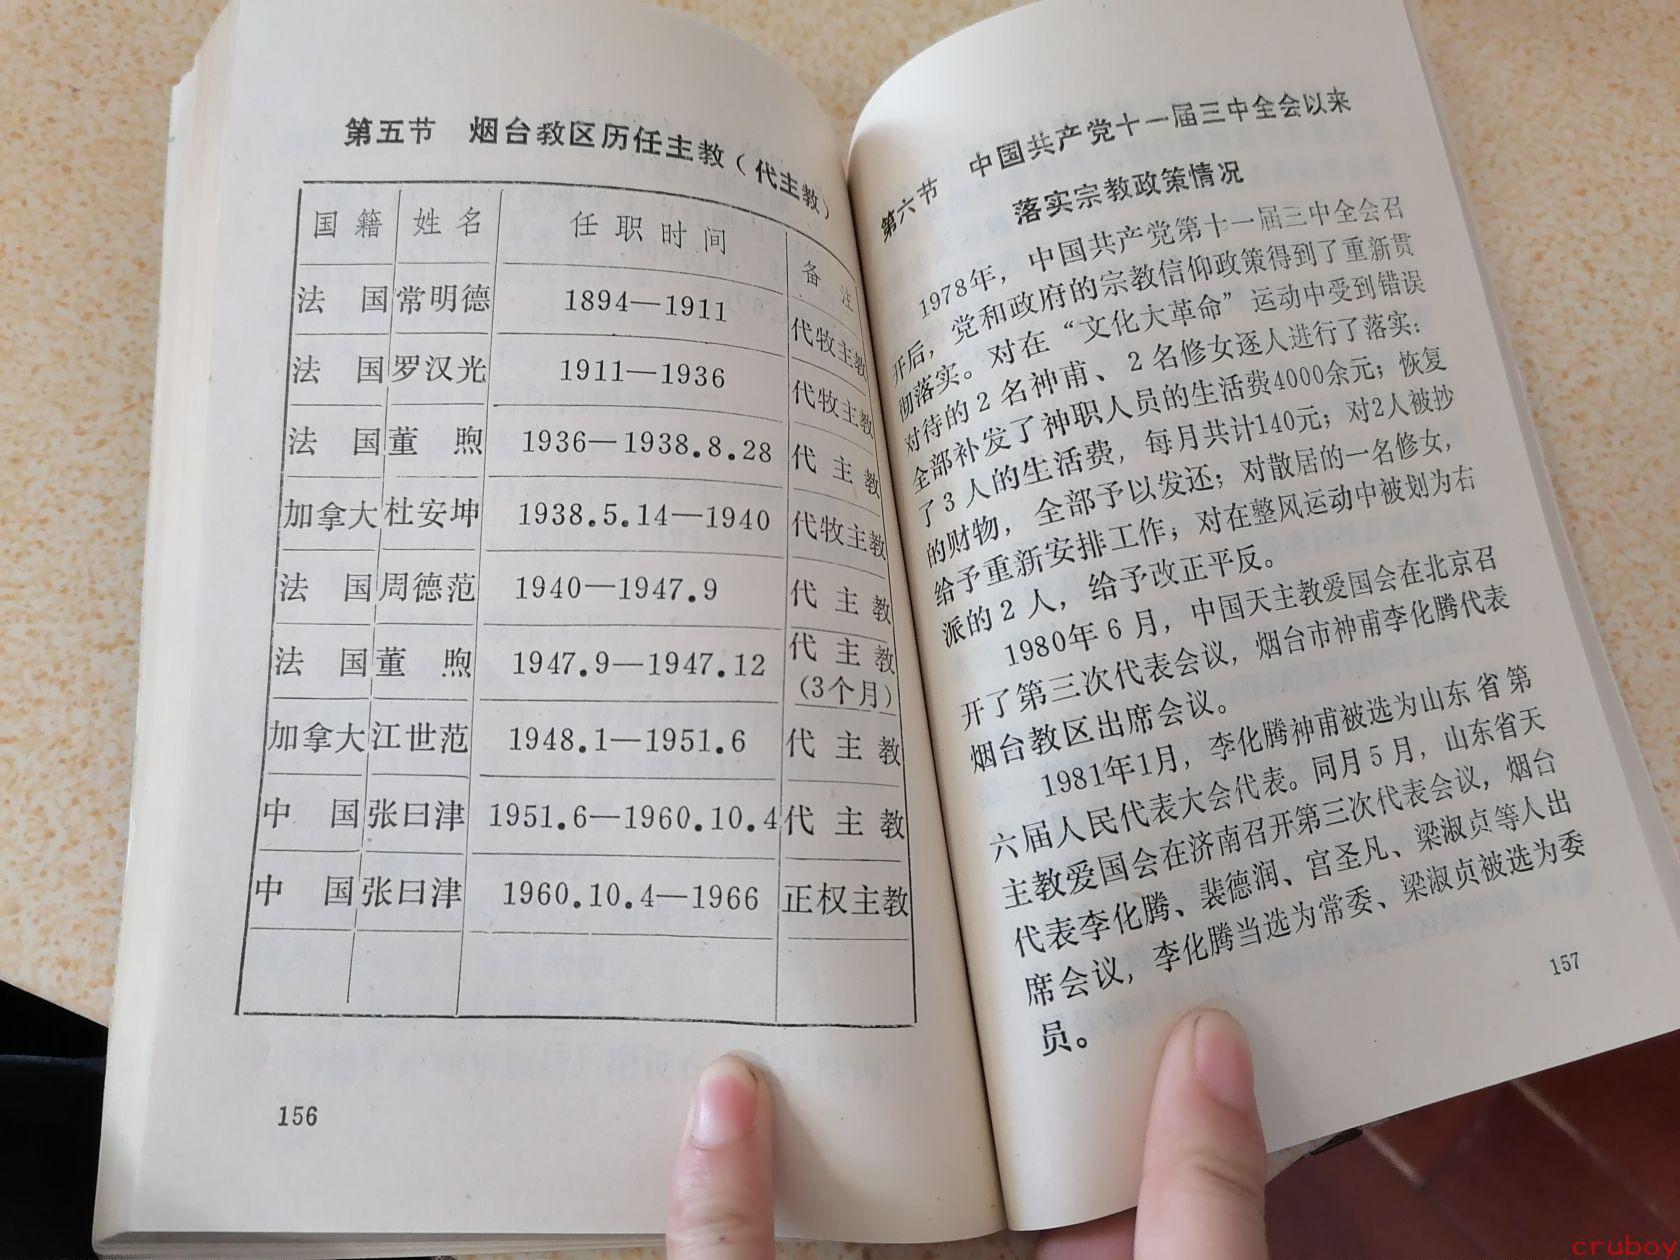 第五节 烟台教区历任主教(代主教)
国籍 姓名 任职时间 备注
法国 常明德 1894—1911 代牧主教
法国 罗汉光 1911—1936 代牧主教
法国 董煦 1936—1938.8.28 代主教
加拿大 杜安坤 1938.5.14—1940 代牧主教
法国 周德范 1940—1947.9 代主教
法国 董煦 1947.9—1947.12 代主教
(3个月)
加拿大 江世范 1948.1—1951.6 代主教
中国 张曰津 1951.6—1960.10.4 代主教
中国 张曰津 1960.10.4—1966 正权主教
156
第六节 中国共产党十一届三中全会以来
落实宗教政策情况
1978年，中国共产党第十一届三中全会召
开后，党和政府的宗教信仰政策得到了重新贯
彻落实。对在“文化大革命”运动中受到错误
对待的2名神甫、2名修女逐人进行了落实；
全部补发了神职人员的生活费4000余元；恢复
了3人的生活费，每月共计140元；对2人被抄
的财物，全部予以发还；对散居的一名修女，
给予重新安排工作；对在整风运动中被划为右
派的2人，给予改正平反。
1980年6月，中国天主教爱国会在北京召
开了第三次代表会议，烟台市神甫李化腾代表
烟台教区出席会议。
1981年1月，李化腾神甫被选为山东省第
六届人民代表大会代表。同月5月，山东省天
主教爱国会在济南召开第三次代表会议，烟台
代表李化腾、裴德润、宫圣凡、梁淑贞等人出
席会议，李化腾当选为常委、梁淑贞被选为委
员。
157
cruboy